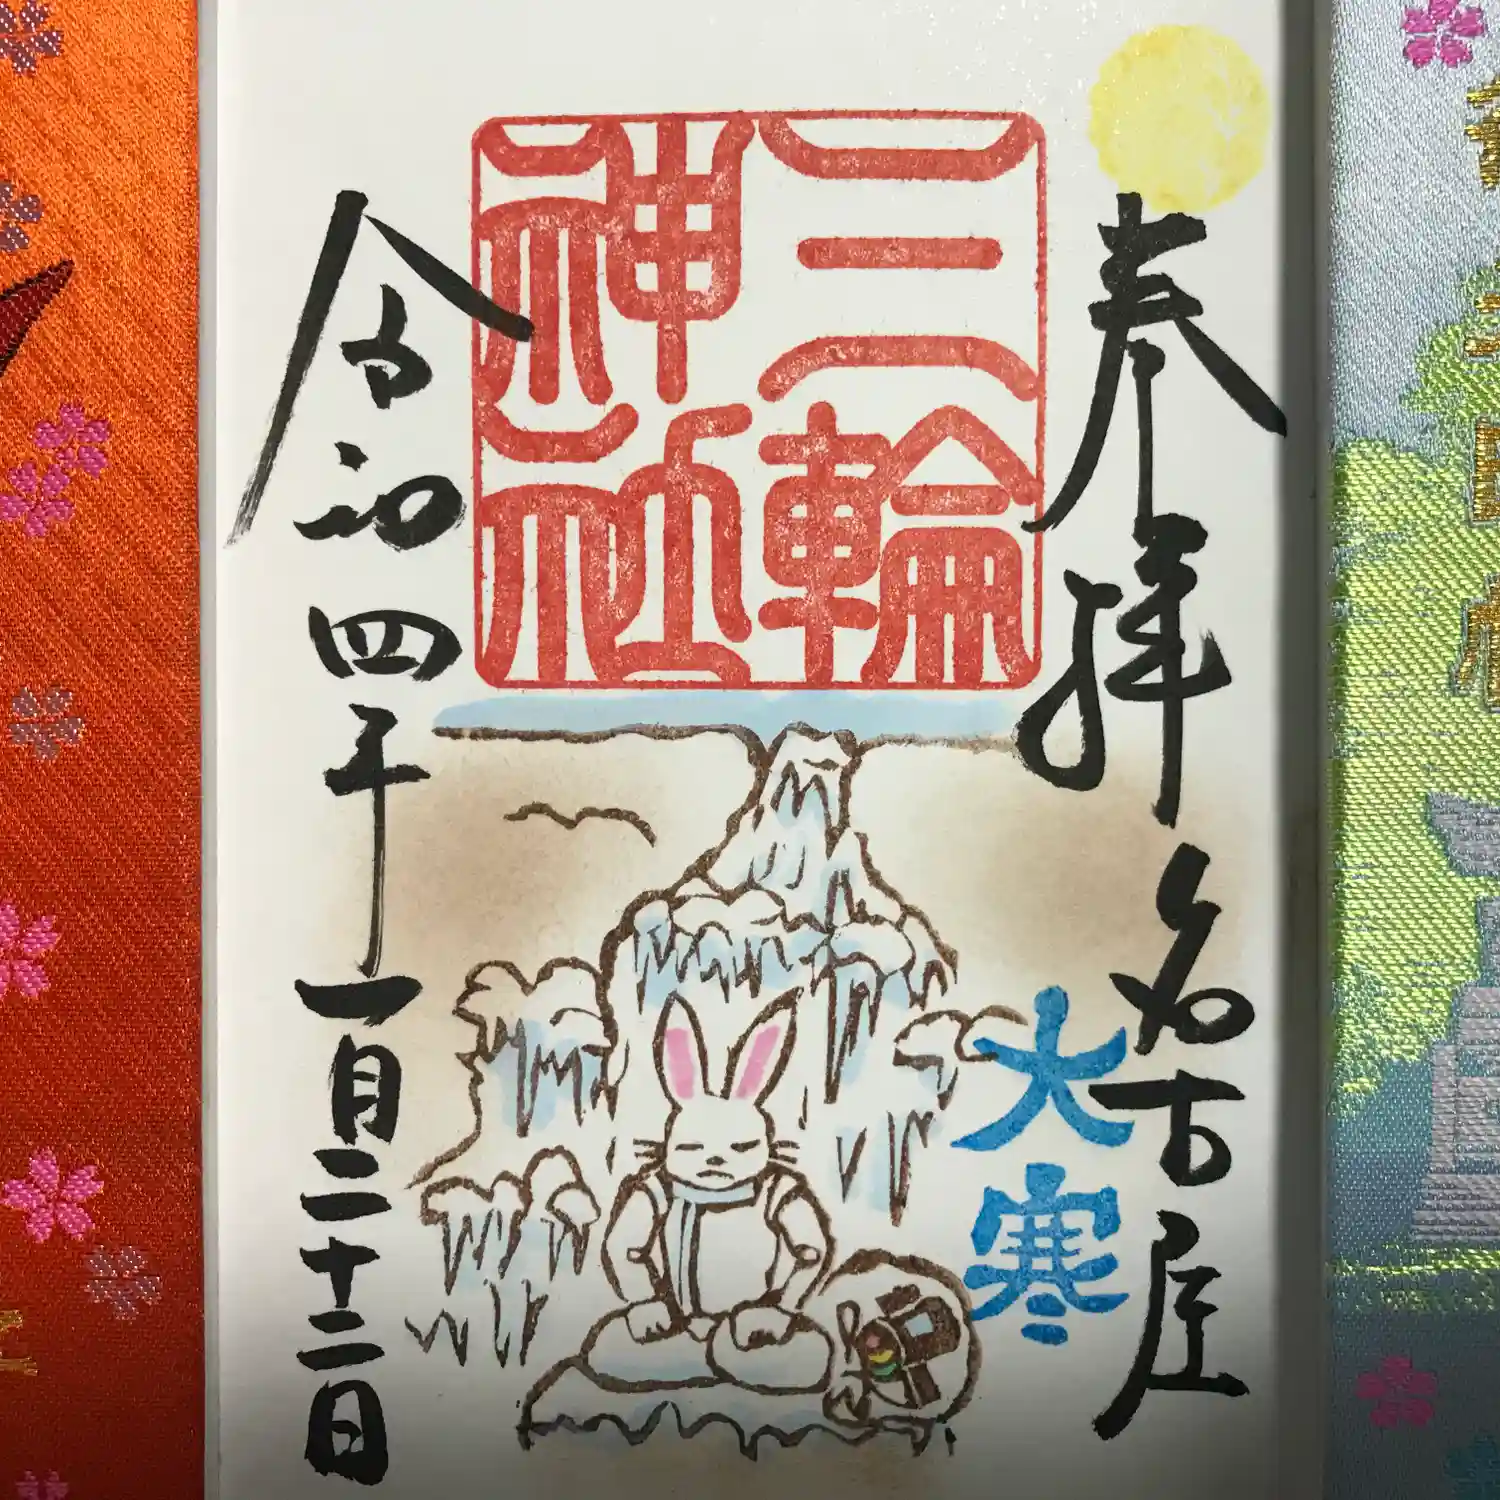 奉拝 名古屋
三輪
神社
大寒
令和四年一月二十二日